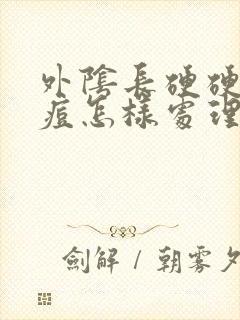 外陰長硬硬
痘怎樣處理
劍解 / 朝雾夕